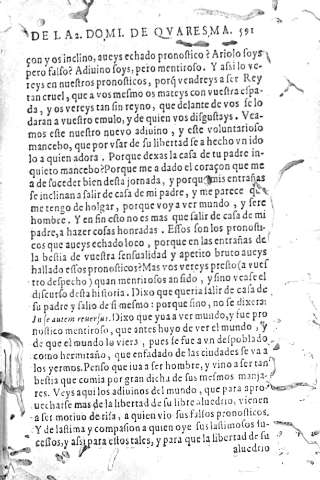 DE LA 2. DOMI. DE QVARESMA. 591
çon y os inclino, aueys echado pronostico? Ariolo soys
pero falso? Adiuino soys, pero mentiroso. Y assi lo ve-
reys en nuestros pronosticos, porq̃ vendreys a ser Rey
tan cruel, que a vos mesmo os mateys con vuestra espa-
da, y os vereys tan sin reyno, que delante de vos se lo
daran a vuestro emulo, y de quien vos disgustays. Vea-
mos este nuestro nuevo adiuino, y este voluntarioso
mancebo, que por vsar de su libertad se a hecho vn ido
lo a quien adora. Porque dexas la casa de tu padre in-
quieto mancebo? Porque me a dado el coraçon que me
a de suceder bien desta jornada, y porque mis entrañas
se inclinan a salir de casa de mi padre, y me parece q̃
me tengo de holgar, porque voy a ver mundo, y sere
hombre. Y en fin esto no es mas que salir de casa de mi
padre, a hazer cosas honradas. Essos son los pronosti-
cos que aueys echado loco, porque en las entrañas de
la bestia de vuestra sensualidad y apetito bruto aueys
hallado essos pronosticos? Mas vos vereys presto (a vues
tro despecho) quan mentirosos an sido, y sino vease el
discurso desta historia. Dixo que queria salir de casa de
su padre y salio de si mesmo: porque sino, no se dixera:
In se autem reuersus. Dixo que yua a ver mundo, y fue pro
nostico mentiroso, que antes huyo de ver el mundo, y
de que el mundo lo viera, pues se fue a vn despoblado
como hermitaño, que enfadado de las ciudades se va a
los yermos. Penso que iua a ser hombre, y vino a ser tan
bestia que comia por gran dicha de sus mesmos manja-
res. Veys aqui los adiuinos del mundo, que para apro-
uecharse mas de la libertad de su libre aluedrio, vienen
a ser motiuo de risa, a quien vio sus falsos pronosticos.
Y de lastima y compasion a quien oye sus lastimosos su-
cessos, y assi para estos tales, y para que la libertad de su
aluedrio